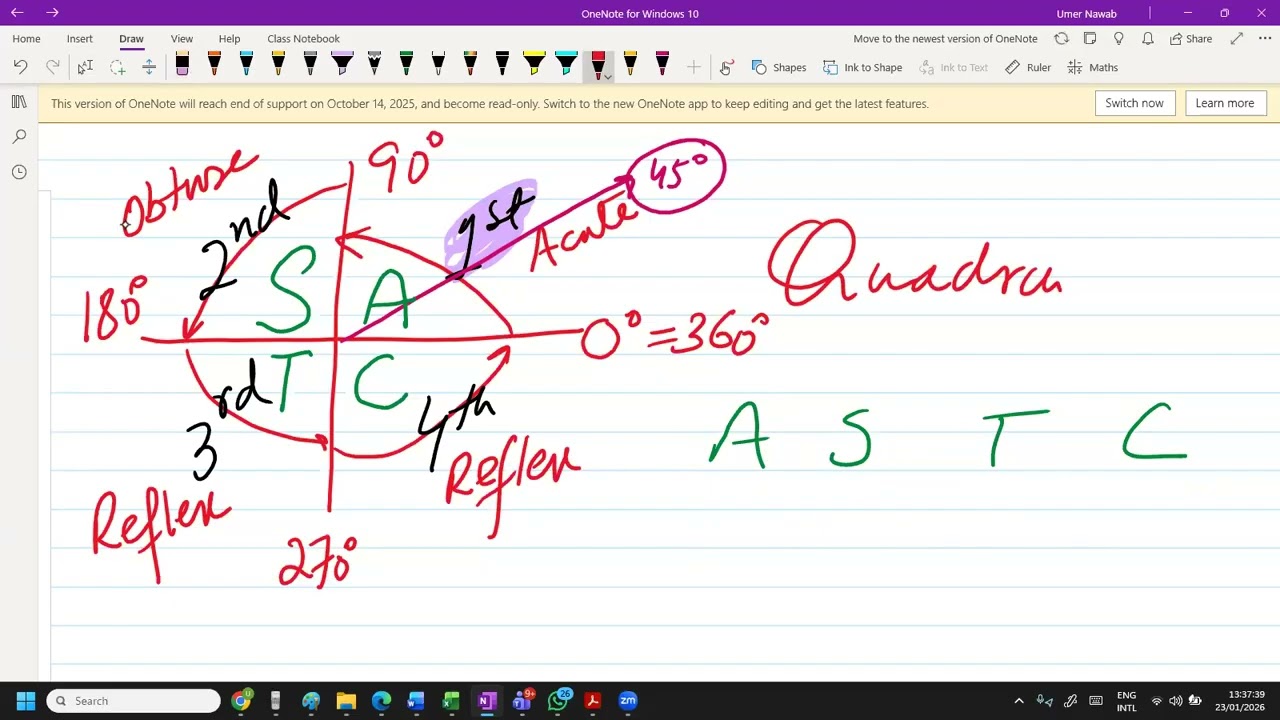 OneNote for Windows 10
Umer Nawab
Home Insert Draw View Help Class Notebook
Move to the newest version of OneNote Share
Shapes Ink to Shape Ink to Text Ruler Maths
This version of OneNote will reach end of support on October 14, 2025, and become read-only. Switch to the new OneNote app to keep editing and get the latest features.
Switch now Learn more
90°
45°
Obtuse
2nd
1st
Acute
S A
Quadran
180°
0° = 360°
T C
3rd
4th
A S T C
Reflex
Reflex
270°
Search
9+
26
zm
ENG
INTL
13:37:39
23/01/2026